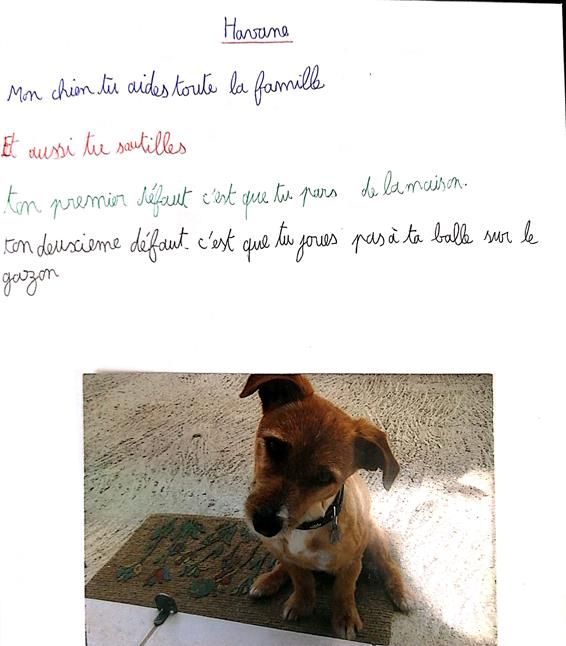 Havane
Mon chien tu aides toute la famille
Et aussi tu sautilles
ton premier défaut c'est que tu pars de la maison.
ton deuxieme défaut. c'est que tu joues pas à ta balle sur le
gazon